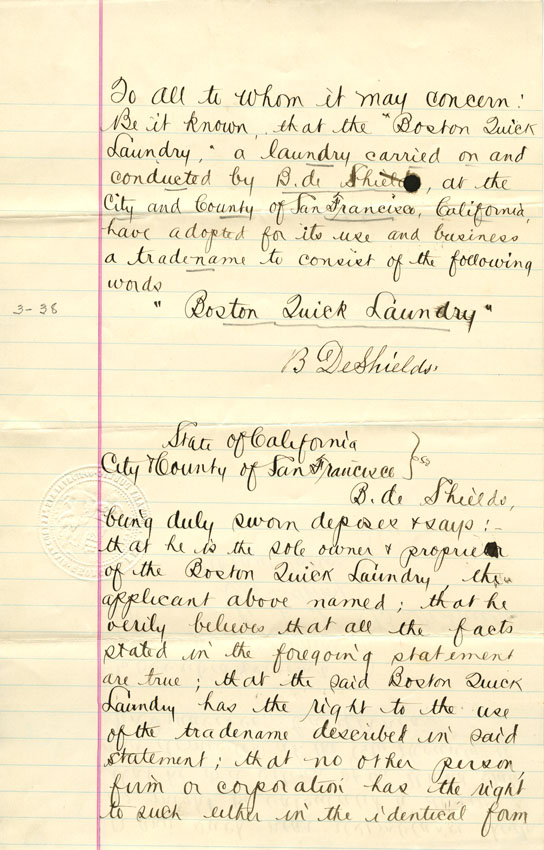 To all to whom it may concern:
Be it known, that the "Boston Quick
Laundry," a laundry carried on and
conducted by B. de Shields, at the
City and County of San Francisco, California,
have adopted for its use and business
a tradename to consist of the following
words
3-38
"Boston Quick Laundry"
B De Shields.
State of California
City & County of San Francisco } ss
B. de Shields,
being duly sworn deposes & says:-
that he is the sole owner & proprietor
of the Boston Quick Laundry, the
applicant above named; that he
verily believes that all the facts
stated in the foregoing statement
are true; that the said Boston Quick
Laundry has the right to the use
of the tradename described in said
statement; that no other person,
firm or corporation has the right
to such either in the identical form